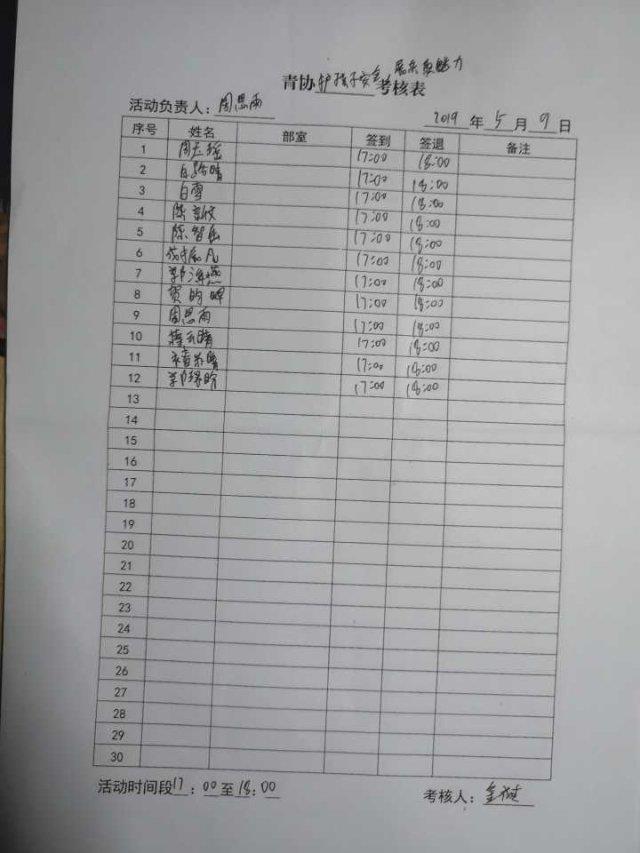 青协护孩子安全 展示系魅力考核表
活动负责人:周思雨
2019 年 5 月 9 日
序号 姓名 部室 签到 签退 备注
1 17:00 18:00
2 17:00 18:00
3 白雪 17:00 18:00
4 17:00 18:00
5 陈智 17:00 18:00
6 17:00 18:00
7 17:00 18:00
8 贺昀晔 17:00 18:00
9 周思雨 17:00 18:00
10 17:00 18:00
11 17:00 18:00
12 17:00 18:00
13
14
15
16
17
18
19
20
21
22
23
24
25
26
27
28
29
30
活动时间段17:00至18:00
考核人: